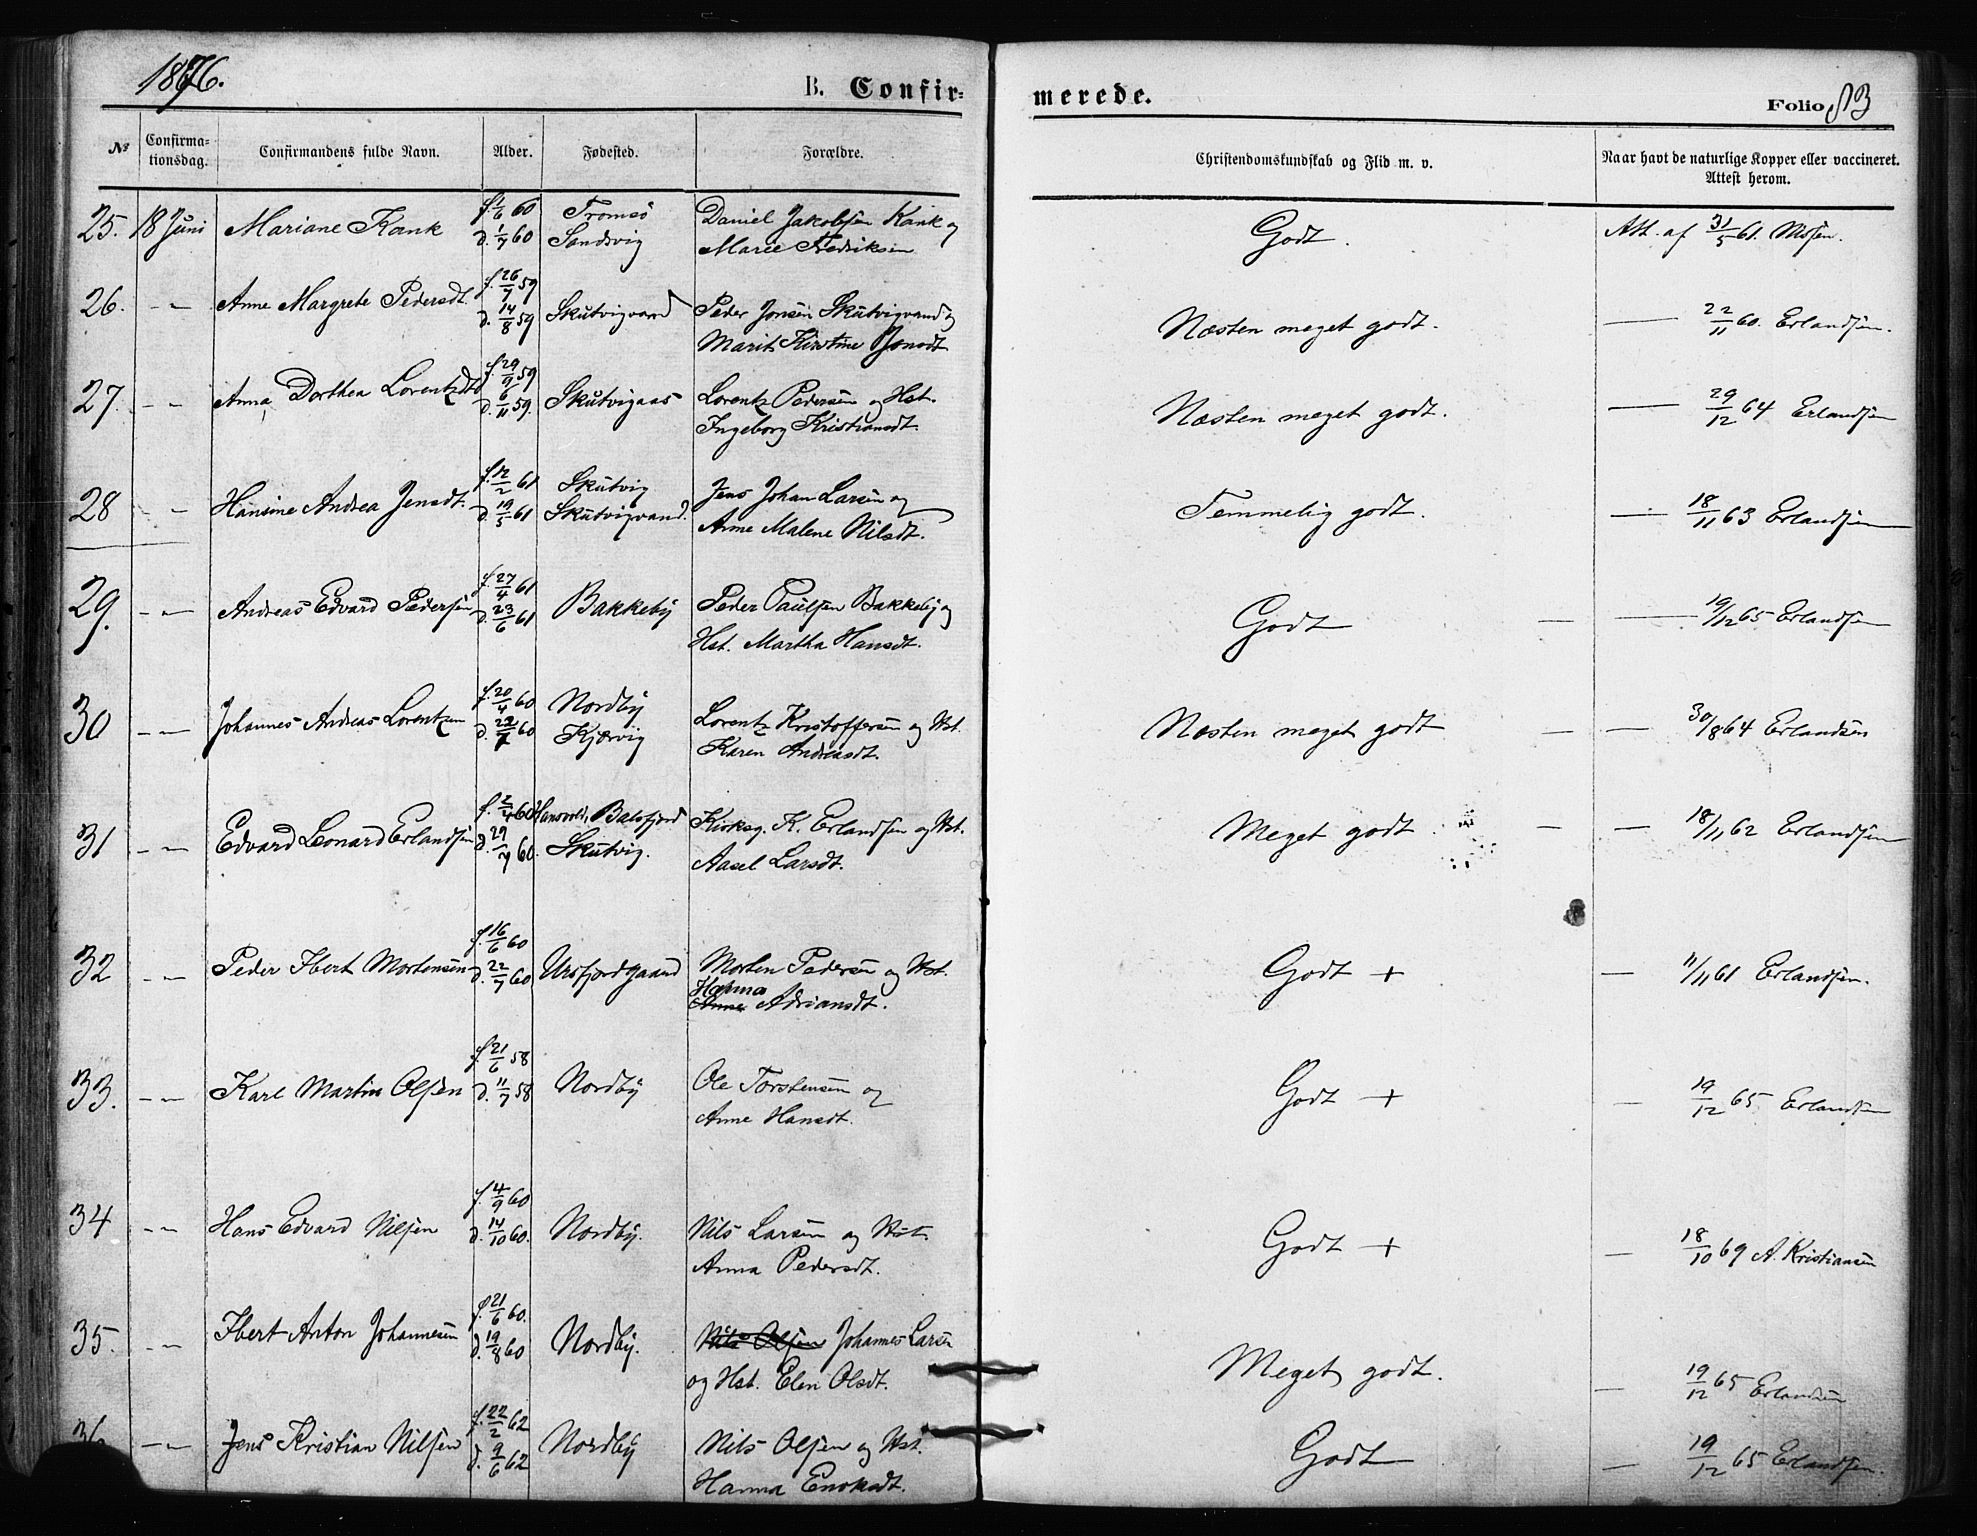 1876.
B. Confir-
merede.
Folio 83
№
Confirma-
tionsdag.
Confirmandens fulde Navn.
Alder.
Fødested.
Forældre.
Christendomskundskab og Flid m. v.
Naar havt de naturlige Kopper eller vaccineret.
Attest herom.
25. 18 Juni Mariane Kank f. 1/6 60 Tromsö Daniel Jakobsen Kank og Godt. Att. af 31/5 61. Nissen.
d. 1/7 60 Sandvig Marie Fredriksen
26. - - Anne Margrete Pedersdt. f. 26/7 59 Skutvigvand Peder Jonsen Skutvigvand og Næsten meget godt. — 22/11 60. Erlandsen.
d. 14/8 59 Marit Kirstine Jonsdt.
27. - - Anna Dorthea Lorentzdt. f. 29/9 59 Skutvigaas Lorentz Pedersen og Hst. Næsten meget godt. — 29/12 64 Erlandsen
d. 6/11 59. Ingeborg Kristiansdt.
28 - - Hansine Andrea Jensdt. f. 12/2 61 Skutvig Jens Johan Larsen og Temmelig godt. — 18/11 63 Erlandsen
d. 19/5 61 Skutvigvand. Anne Malene Nilsdt.
29. - - Andreas Edvard Pedersen f. 27/4 61 Bakkeby Peder Paulsen Bakkeby og Godt — — 19/12 65 Erlandsen
d. 23/6 61 Hst. Martha Hansdt.
30 - - Johannes Andreas Lorentzen f. 20/4 60 Nordby Lorentz Kristoffersen og Hst. Næsten meget godt — — 30/8 64 Erlandsen
d. 22/7 60 Kjærvig Karen Andreasdt.
31 - - Edvard Leonard Erlandsen f. 2/4 60 Hansvold, Balsfjord Kirksg. K. Erlandsen og Hst. Meget godt — — 18/11 62 Erlandsen
d. 29/7 60. Skutvig. Aasel Larsdt.
32 - - Peder Ibert Mortensen f. 16/6 60 Ursfjordgaard Morten Pedersen og Hst. Godt + — 11/11 61 Erlandsen.
d. 22/7 60 Hanna
Anne Adriansdt.
33. - - Karl Martin Olsen f. 21/6 58 Nordby Ole Torstensen og Godt + — 19/12 65 Erlandsen
d. 11/7 58 Anne Hansdt.
34 - - Hans Edvard Nilsen f. 4/9 60 Nordby. Nils Larsen og Hst. Godt + — 18/10 69 A. Kristiansen
d. 14/10 60. Anna Pedersdt.
35. - - Ibert Anton Johannesen f. 21/6 60. Nordby. Nils Olsen Johannes Larsen Meget godt. — 19/12 65 Erlandsen
d. 19/8 60 og Hst. Elen Olsdt.
36 - - Jens Kristian Nilsen f. 22/2 62 Nordby Nils Olsen og Hst. Godt — 19/12 65 Erlandsen.
d. 9/6 62 Hanna Enoksdt.